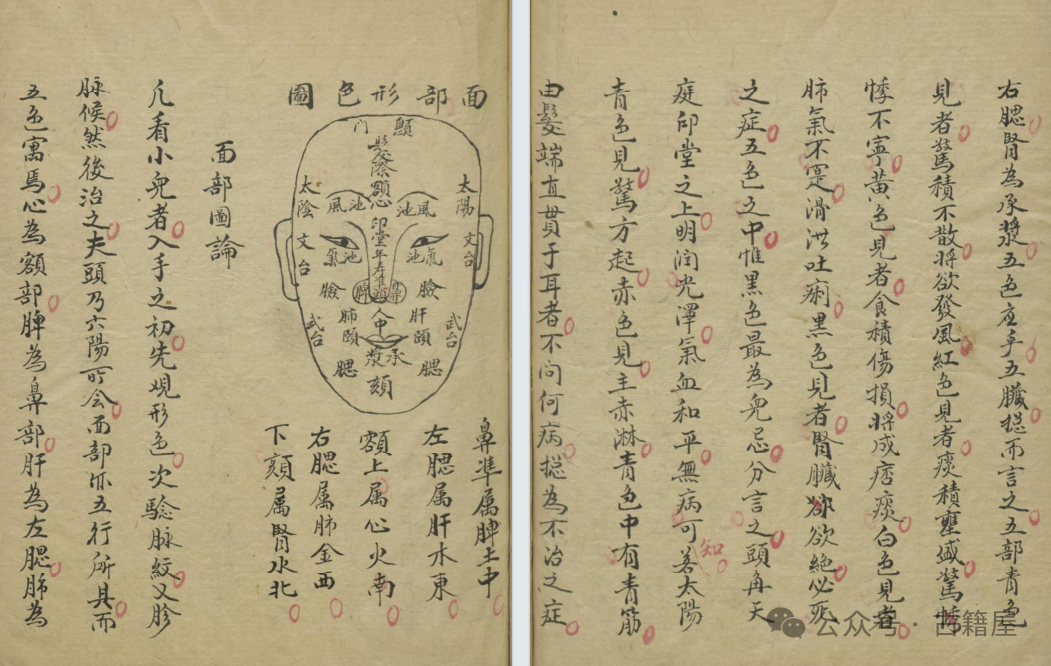 面部形色圖
顖門
髮際
額
心
太陽
太陰
風池
風池
印堂
年寿
準頭
文台
文台
氣池
氣池
臉
臉
脾
人中
肝
肺
頤
頤
武台
武台
承漿
腮
腮
頦
鼻準属脾土中
左腮属肝木東
額上属心火南
右腮属肺金西
下頦属腎水北
面部圖論
凡看小兒者入手之初先观形色次驗脉紋又胗
脉候然後治之夫頭乃六陽所会面部亦五行所具而
五色寓焉心為額部脾為鼻部肝為左腮肺為
右腮腎為承漿五色应乎五臟捴而言之五部青色
見者驚積不散將欲發風紅色見者痰積壅盛驚悸
悸不寧黄色見者食積傷損將成痞痰白色見者
肺氣不寔滑泄吐痢黒色見者腎臟欲絶必死
之症五色之中惟黒色最為兒忌分言之頭角天
庭印堂之上明润光澤氣血和平無病可知若太陽
青色見驚方起赤色見主赤淋青色中有青筋
由髮端直貫于耳者不问何病捴為不治之症
公众号·古籍屋